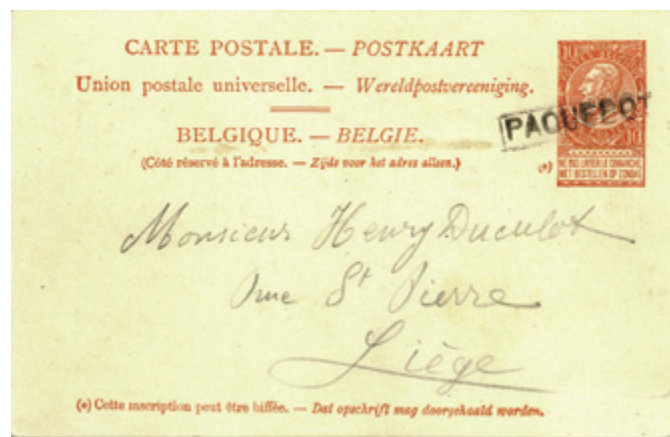 CARTE POSTALE. — POSTKAART
Union postale universelle. — Wereldpostvereeniging.
BELGIQUE. — BELGIE.
(Côté réservé à l'adresse. — Zijde voor het adres alleen.)
(*)
10 10
PAQUEBOT
NE PAS LIVRER LE DIMANCHE
NIET BESTELLEN OP ZONDAG
Monsieur Henry Duculot
rue St Pierre
Liège
(*) Cette inscription peut être biffée. — Dat opschrift mag doorgehaald worden.